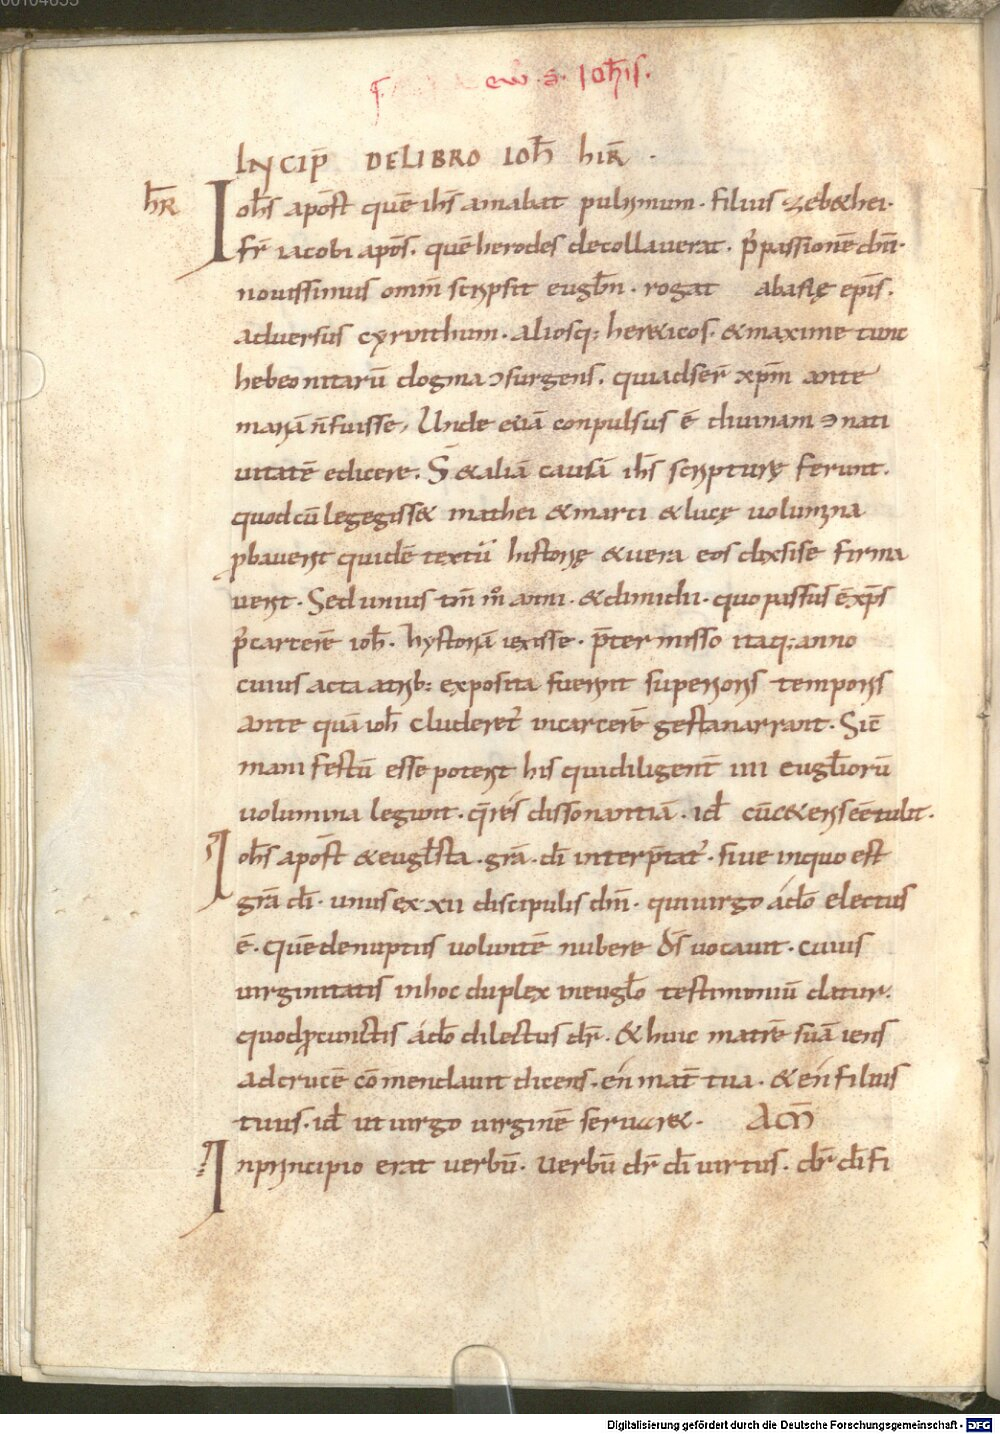 00104053
ew · s · Ioħis ·
INCIP̄ DE LIBRO IOH̄ HIR̄ ·
h̄R Ioh̄s apost̄ quē ih̄s amabat pulrimum · filius zeb&hei ·
fr̄ iacobi apos̄ · quē herodes decollauerat · p̄ passionē dn̄i ·
nouissimus omīn scripsit eugłm · rogat abasię epīs ·
aduersus cyrinthum · aliosq; her&icos · & maxime tunc
hebeonitarū dogma ɔsurgens · qui adser̄ xp̄m ante
mariā n̄ fuisse, Unde &iā conpulsus ē diuinam ɔ nati
uitatē edicere. S̄ & aliā causā ih̄s scripturę ferunt.
quod cū legegiss& mathei & marci & lucę uolumina
ꝓbauerit quidē textū historię & uera eos dixsise firma
uerit · Sed unius tm̄ in̊ anni · & dimidii · quo passus ē xp̄s
p̄ carcerē ioh̄ · hystoriā iexisse · p̄termisso itaq; anno
cuius acta a trib: exposita fuerint superioris temporis
ante quā ioh̄ cluderet̄ in carcerē gesta narrant · Sic̄
manifestū esse poterit his qui diligent̄ iiii eugłiorū
uolumina legunt · q̄ res dissonantiā · id̄ cūc& ersē ē tulit ·
Ioh̄s apost̄ & eugłsta · grā · dī interp̄tat̄ · siue in quo est
grā dī · unus ex xii discipulis dn̄i · qui uirgo a dō electus
ē · quē de nuptiis uolentē nubere d̄s uocauit · cuius
uirginitatis in hoc duplex in eugło testimoniū datur ·
quod p̄ cunctis a dō dilectus dr̄ · & huic matrē suā iens
ad crucē cōmendauit dicens · en mat̄ tua · & en filius
tuus · id̄ ut uirgo uirginē seruar& · AM̄
In principio erat uerbū · Verbū dr̄ dī uirtus · dr̄ dī fi
Digitalisierung gefördert durch die Deutsche Forschungsgemeinschaft - DFG